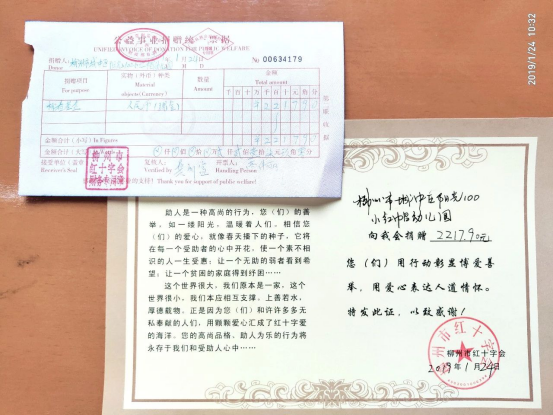 公益事业捐赠统一票据
UNIFIED INVOICE OF DONATION FOR PUBLIC WELFARE
捐赠人
Donor
1月24日
№ 00634179
捐赠项目
For purpose
实物(外币)种类
Material objects(Currency)
数量
Amount
金额
Total amount
千百十万千百十元角分
人民币
221790
金额合计(小写)In Figures
金额合计
接受单位(盖章)
Receiver's Seal
复核人
Verified by
开票人
Handling Person
Thank you for support of public welfare!
柳州市
红十字会
财务专用章
助人是一种高尚的行为,您(们)的善
举,如一缕阳光,温暖着人们。相信您
(们)的爱心,就像春天播下的种子,它将
在每一个受助者的心中开花,使一个素不相
识的人一生受惠;让一个无助的弱者看到希
望;让一个贫困的家庭得到纾困……
这个世界很大,我们原本是一家,这个
世界很小,我们本应相互支撑。上善若水,
厚德载物。正是因为您(们)和许许多多无
私奉献的人们,用颗颗爱心汇成了红十字爱
的海洋。您的高尚品格,助人为乐的行为将
永存于我们和受助人心中……
柳州市 阳光100
小红帽幼儿园
向我会捐赠 2217.90元
您(们)用行动彰显博爱善
举,用爱心表达人道情怀。
特发此证,以致感谢!
柳州市红十字会
柳州市红十字会
2019年1月24日
2019/1/24 10:32